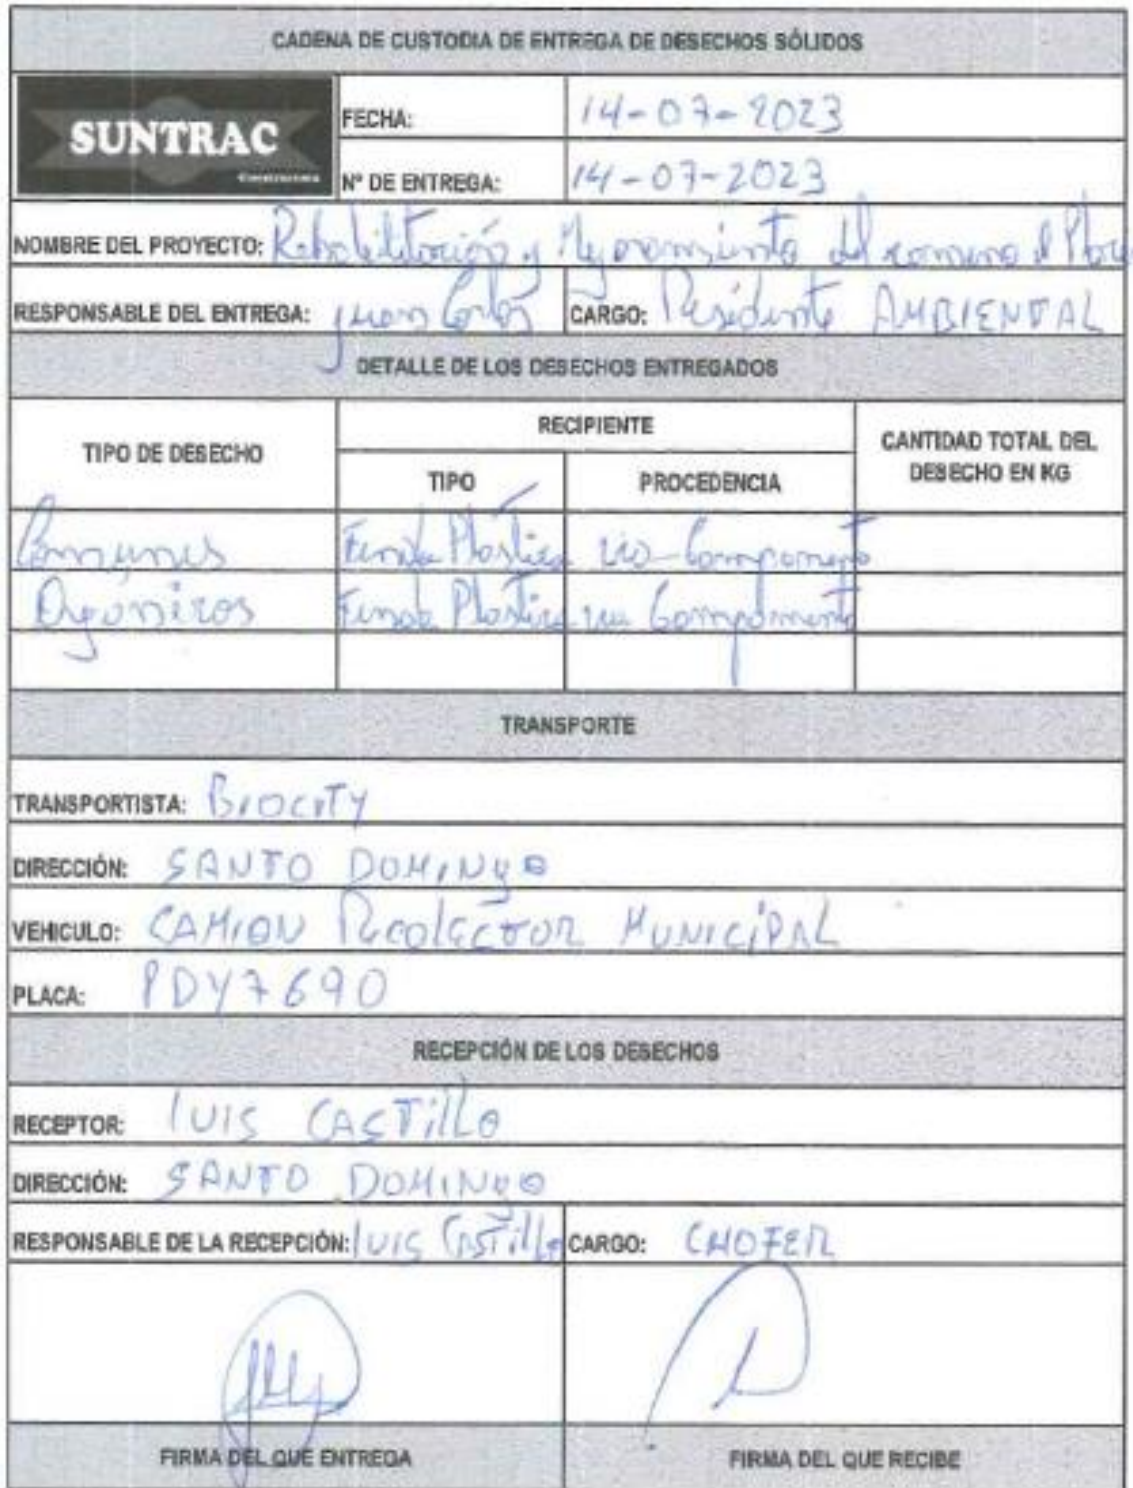 CADENA DE CUSTODIA DE ENTREGA DE DESECHOS SÓLIDOS
SUNTRAC
Constructora
FECHA: 14-07-2023
Nº DE ENTREGA: 14-07-2023
NOMBRE DEL PROYECTO: Rehabilitación y Mejoramiento del camino el
RESPONSABLE DEL ENTREGA: Juan Carlos CARGO: Residente AMBIENTAL
DETALLE DE LOS DESECHOS ENTREGADOS
TIPO DE DESECHO RECIPIENTE CANTIDAD TOTAL DEL DESECHO EN KG
TIPO PROCEDENCIA
Comunes Funda Plástica Campamento
Orgánicos Funda Plástica Campamento
TRANSPORTE
TRANSPORTISTA: BIOCITY
DIRECCIÓN: SANTO DOMINGO
VEHICULO: CAMION Recolector MUNICIPAL
PLACA: PDY7690
RECEPCIÓN DE LOS DESECHOS
RECEPTOR: LUIS CASTILLO
DIRECCIÓN: SANTO DOMINGO
RESPONSABLE DE LA RECEPCIÓN: LUIS CASTILLO CARGO: CHOFER
FIRMA DEL QUE ENTREGA FIRMA DEL QUE RECIBE